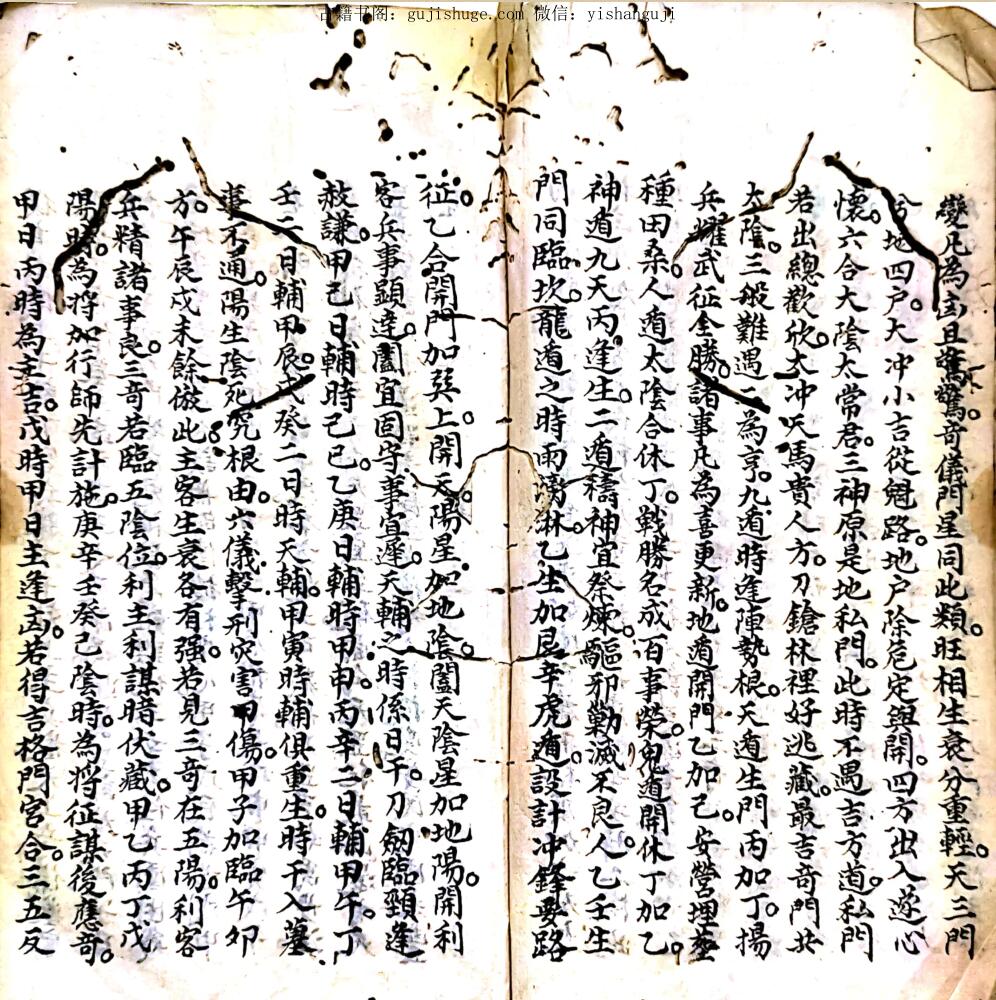 古籍书阁：gujishuge.com 微信：yishanguji
變凡為凶且驚驚。奇儀門星同此類。旺相生衰分重輕。天三門
地四户。大冲小吉從魁路。地户除危定與開。四方出入遂心
懷。六合大陰太常君。三神原是地私門。此時不遇吉方道。私門
若出總歡欣。太冲天馬貴人方。刀鎗林裡好逃藏。最吉奇門共
太陰。三般難遇二為亨。九遁時逢陣勢根。天遁生門丙加丁。揚
兵耀武征全勝。諸事凡為喜更新。地遁開門乙加己。安營埋
種田桑。人遁太陰合休丁。戦勝名成百事榮。兒遁開休丁加乙。
神遁九天丙逢生。二遁禱神宜祭煉。驅邪勦滅不良人。乙壬生
門同臨坎。龍遁之時雨滂淋。乙生加艮辛虎遁。設計冲鋒要路
征。乙合開門加巽上。開天陽星加地陰。闔天陰星加地陽。開利
客兵事顯達。闔宜固守事宜遲。天輔之時係日干。刀劒臨頸逢
赦謙。甲己日輔時己巳。乙庚日輔時甲申。丙辛二日輔甲午。丁
壬二日輔甲辰。戊癸二日時天輔。甲寅時輔俱重生。時干入墓
事不通。陽生陰死究根由。六儀擊刑灾害甲傷。甲子加臨午卯
方。午辰戌未餘倣此。主客生衰各有强。若見三奇在五陽。利客
兵精諸事良。三奇若臨五陰位。利主利謀暗伏藏。甲乙丙丁戊
陽時。為将加行師先計施。庚辛壬癸己陰時。為将征謀後應奇。
甲日丙時為主吉。戊時甲日主逢凶。若得吉格門宮合。三五反